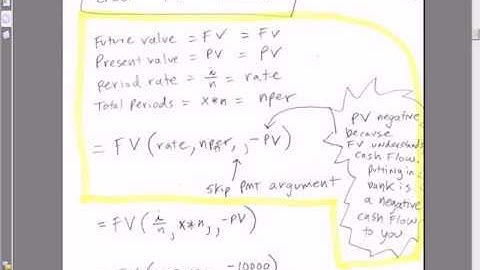 Future value = FV = FV
Present value = PV = PV
Period rate = i/n = rate
Total periods = x*n = nper
= FV(rate, nper, , -PV)
skip PMT argument
PV negative
because
FV understands
cash flow.
Putting in
bank is
a negative
cash flow
to you
= FV(i/n, x*n, , -PV)
-10000)